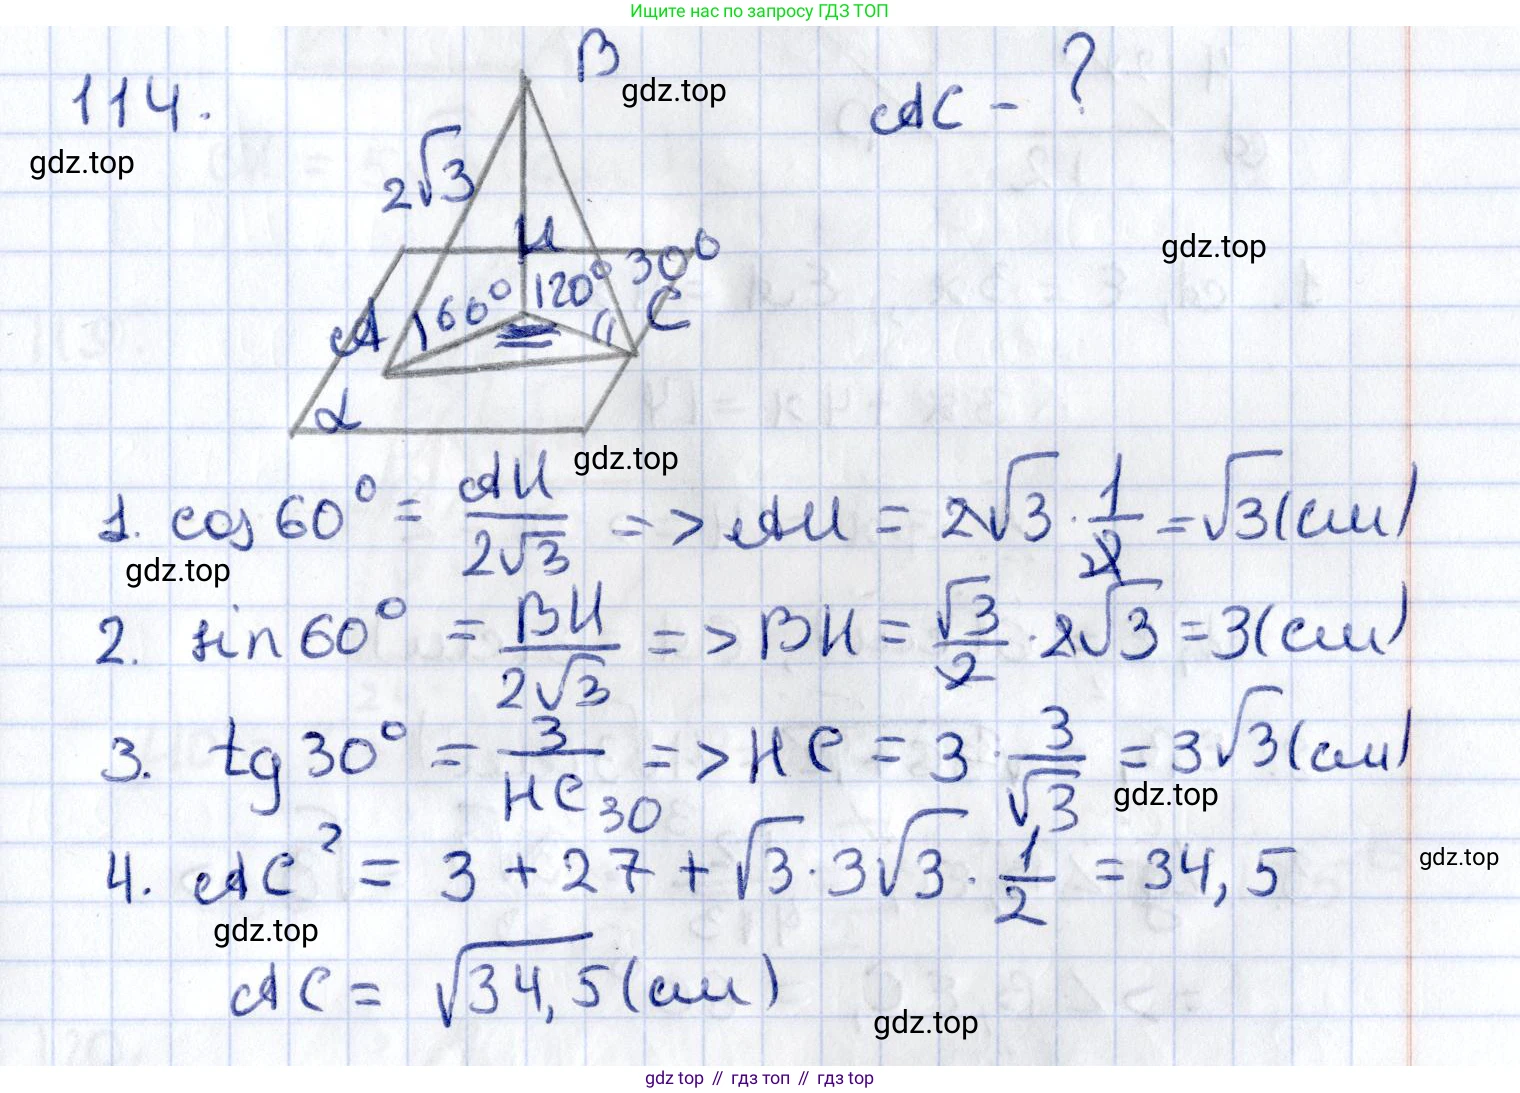 Ищите нас по запросу ГДЗ ТОП
114.
B
gdz.top
AC - ?
gdz.top
2√3
H
30°
gdz.top
A
60°
120°
C
α
gdz.top
1. cos 60° = AH/2√3 => AH = 2√3 · 1/2 = √3 (см)
gdz.top
2. sin 60° = BH/2√3 => BH = √3/2 · 2√3 = 3 (см)
3. tg 30° = 3/HC => HC = 3 · 3/√3 = 3√3 (см)
gdz.top
30
4. AC² = 3 + 27 + √3 · 3√3 · 1/2 = 34,5
gdz.top
gdz.top
AC = √34,5 (см)
gdz.top
gdz top // гдз топ // гдз top